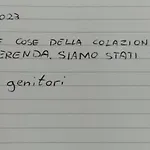 2023
E COSE DELLA COLAZION
ERENDA. SIAMO STATI
genitori